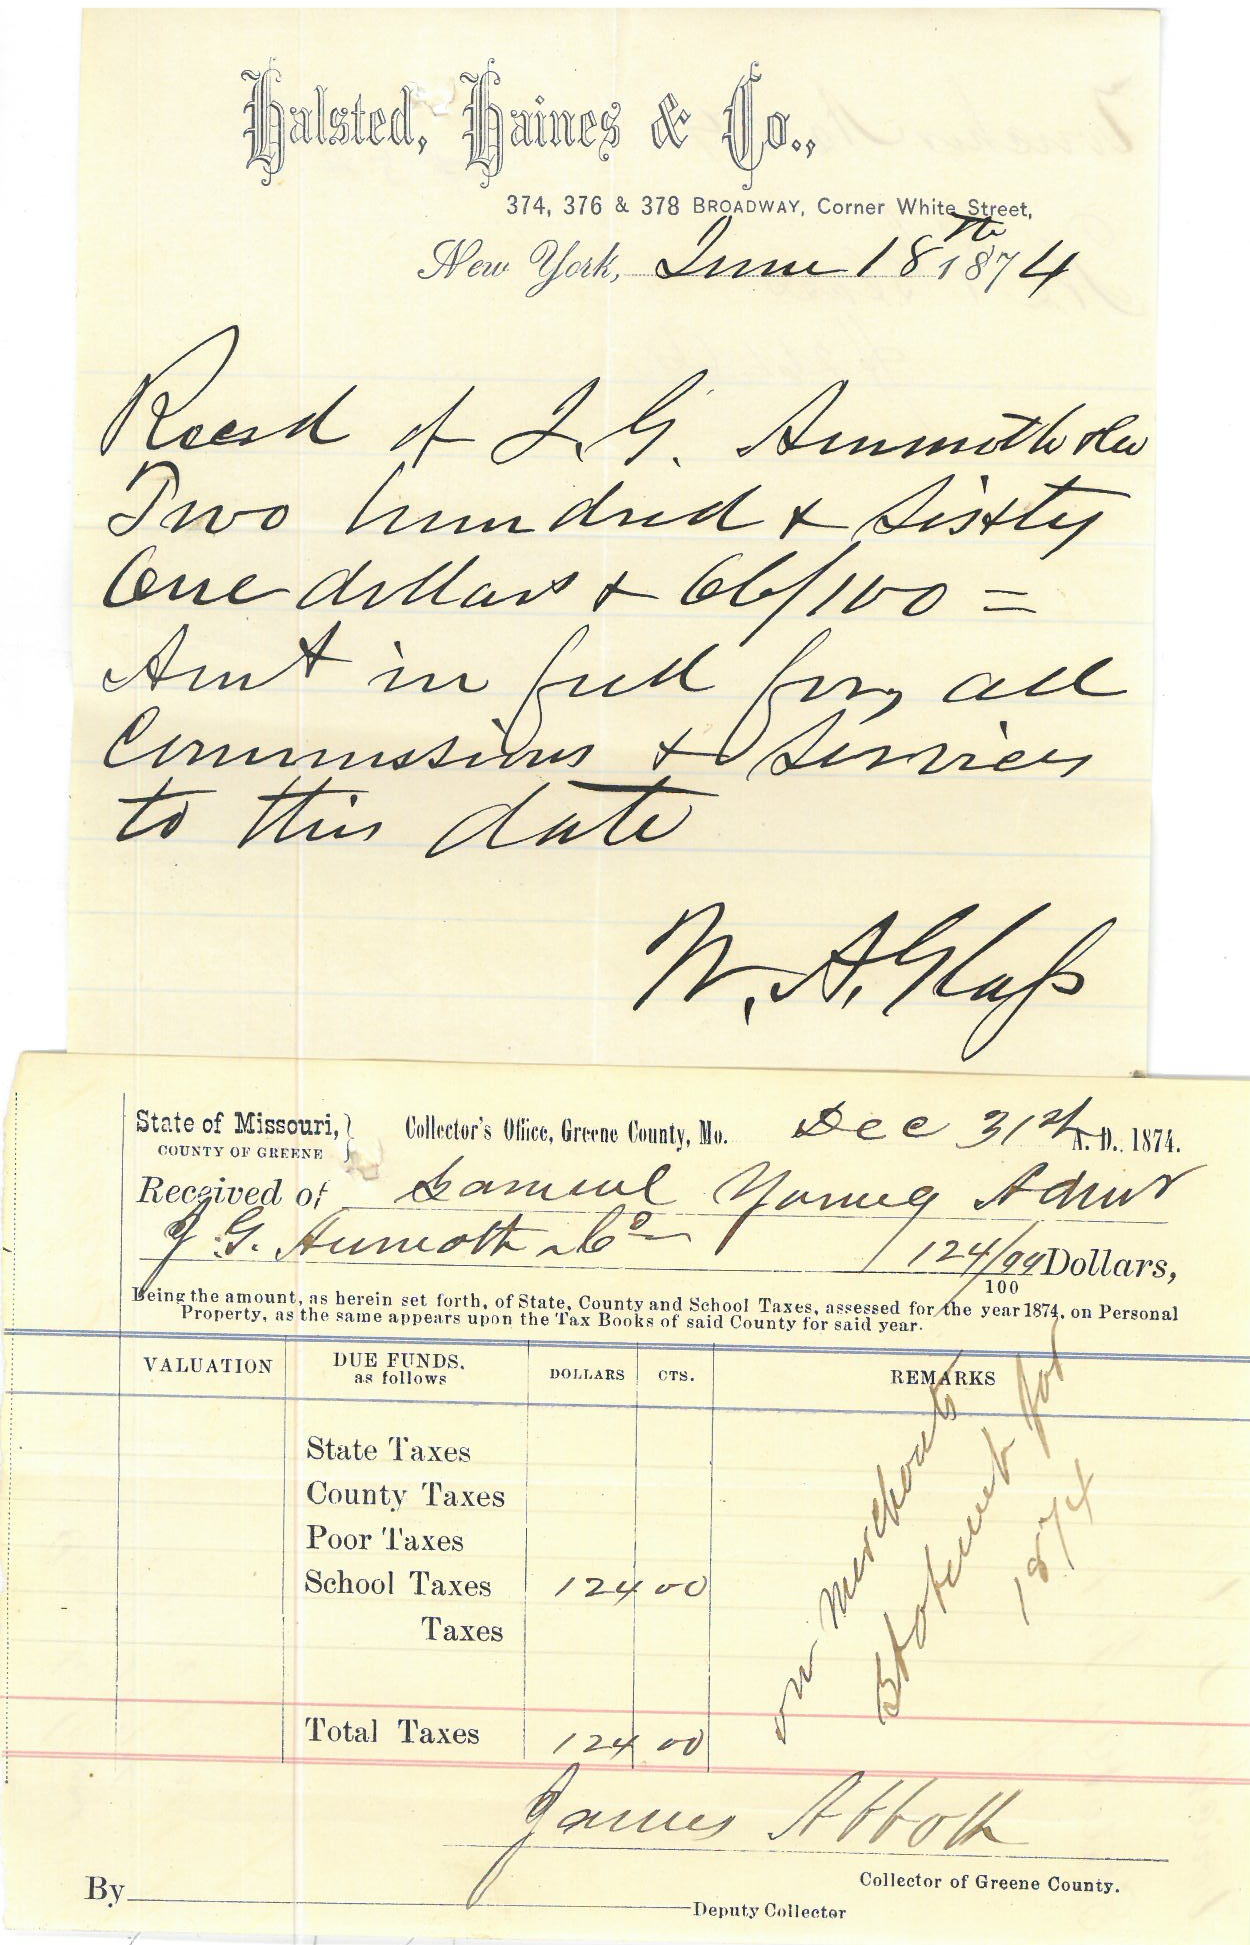 Halsted, Haines & Co.,
374, 376 & 378 BROADWAY, Corner White Street,
New York, June 18th 1874
Recd of J. G.
Two hundred & sixty
One dollars & 66/100 =
Amt in full for all
Commissions & Services
to this date
W. A. Glass
State of Missouri, } Collector's Office, Greene County, Mo. Dec 31st A. D. 1874.
COUNTY OF GREENE
Received of Samuel Young Admr
J. G. Co 124/00 Dollars,
100
Being the amount, as herein set forth, of State, County and School Taxes, assessed for the year 1874, on Personal
Property, as the same appears upon the Tax Books of said County for said year.
VALUATION DUE FUNDS. as follows DOLLARS CTS. REMARKS
State Taxes
County Taxes
Poor Taxes
School Taxes 124 00
Taxes
Total Taxes 124 00
on merchants
Statement for
1874
James Abbott
Collector of Greene County.
By Deputy Collector